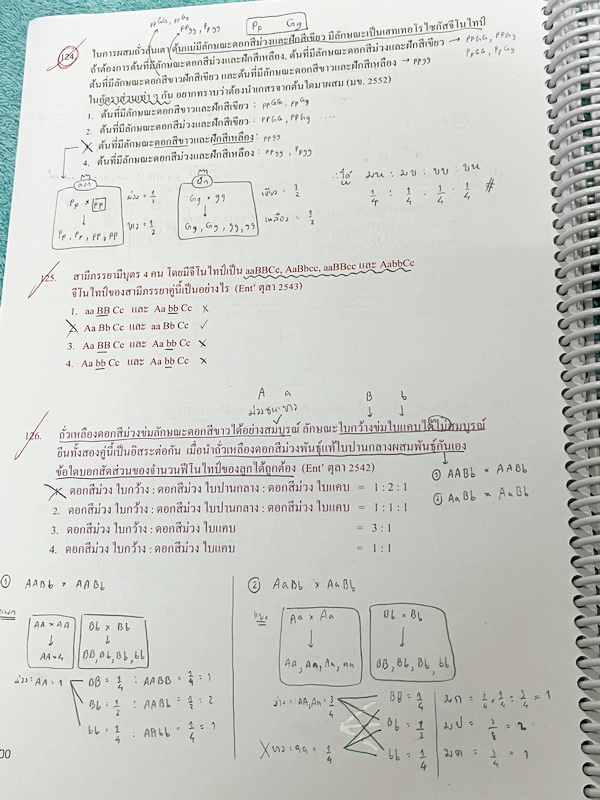 ppGG, ppGg
ppgg, Ppgg
Pp Gg
124. ในการผสมถั่วลันเตา ต้นแม่มีลักษณะดอกสีม่วงและฝักสีเขียว มีลักษณะเป็นเฮทเทอโรไซกัสจีโนไทป์
ถ้าต้องการต้นที่มีลักษณะดอกสีม่วงและฝักสีเหลือง, ต้นที่มีลักษณะดอกสีม่วงและฝักสีเขียว → PPGG, PPGg
ต้นที่มีลักษณะดอกสีขาวฝักสีเขียว และต้นที่มีลักษณะดอกสีขาวและฝักสีเหลือง → ppgg PpGG, PpGg
ในอัตราส่วนเท่า ๆ กัน อยากทราบว่าต้องนำเกสรจากต้นใดมาผสม (มข. 2552)
1. ต้นที่มีลักษณะดอกสีขาวและฝักสีเขียว : ppGG, ppGg
2. ต้นที่มีลักษณะดอกสีม่วงและฝักสีเขียว : PPGG, PPGg
3. ต้นที่มีลักษณะดอกสีขาวและฝักสีเหลือง : ppgg
4. ต้นที่มีลักษณะดอกสีม่วงและฝักสีเหลือง : PPgg, Ppgg
ดอก ฝัก
Pp × pp ม่วง = 1/2 Gg × gg เขียว = 1/2
Pp, Pp, pp, pp ขาว = 1/2 Gg, Gg, gg, gg เหลือง = 1/2
1/4 : 1/4 : 1/4 : 1/4 #
125. สามีภรรยามีบุตร 4 คน โดยมีจีโนไทป์เป็น aaBBCc, AaBbcc, aaBBcc และ AabbCc
จีโนไทป์ของสามีภรรยาคู่นี้เป็นอย่างไร (Ent' ตุลา 2543)
1. aa BB Cc และ Aa bb Cc ×
2. Aa Bb Cc และ aa Bb Cc ✓
3. Aa BB Cc และ Aa bb Cc ×
4. Aa bb Cc และ Aa bb Cc ×
A a B b
126. ถั่วเหลืองดอกสีม่วงข่มลักษณะดอกสีขาวได้อย่างสมบูรณ์ ลักษณะใบกว้างข่มใบแคบได้ไม่สมบูรณ์
ยีนทั้งสองคู่นี้เป็นอิสระต่อกัน เมื่อนำถั่วเหลืองดอกสีม่วงพันธุ์แท้ใบปานกลางผสมพันธุ์กันเอง
ข้อใดบอกสัดส่วนของจำนวนฟีโนไทป์ของลูกได้ถูกต้อง (Ent' ตุลา 2542)
① AABb × AABb
② AaBb × AaBb
1. ดอกสีม่วง ใบกว้าง : ดอกสีม่วง ใบปานกลาง : ดอกสีม่วง ใบแคบ = 1 : 2 : 1
2. ดอกสีม่วง ใบกว้าง : ดอกสีม่วง ใบปานกลาง : ดอกสีม่วง ใบแคบ = 1 : 1 : 1
3. ดอกสีม่วง ใบกว้าง : ดอกสีม่วง ใบแคบ = 3 : 1
4. ดอกสีม่วง ใบกว้าง : ดอกสีม่วง ใบแคบ = 1 : 1
① AABb × AABb
AA × AA Bb × Bb
BB, Bb, Bb, bb
ม่วง = AA = 1
BB = 1/4 : AABB = 1/4 = 1
Bb = 1/2 : AABb = = 2
bb = 1/4 : AAbb = 1/4 = 1
② AaBb × AaBb
Aa × Aa Bb × Bb
AA, Aa, Aa, aa BB, Bb, Bb, bb
ม่วง = AA, Aa = 3/4
ขาว = aa = 1/4
BB = 1/4
Bb = 1/2
bb = 1/4
00